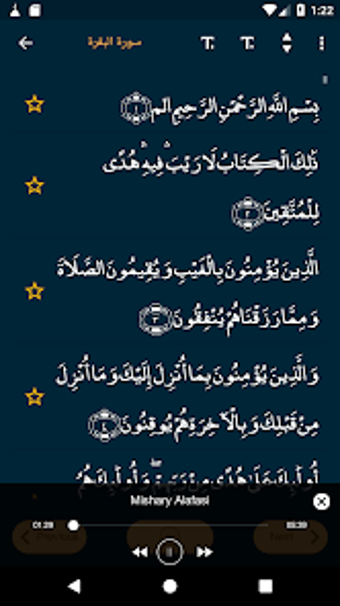 1:22
سورة البقرة
T T
بِسْمِ اللَّهِ الرَّحْمَٰنِ الرَّحِيمِ الم ١
ذَٰلِكَ الْكِتَابُ لَا رَيْبَ ۛ فِيهِ ۛ هُدًى
لِلْمُتَّقِينَ ٢
الَّذِينَ يُؤْمِنُونَ بِالْغَيْبِ وَيُقِيمُونَ الصَّلَاةَ
وَمِمَّا رَزَقْنَاهُمْ يُنْفِقُونَ ٣
وَالَّذِينَ يُؤْمِنُونَ بِمَا أُنْزِلَ إِلَيْكَ وَمَا أُنْزِلَ
مِنْ قَبْلِكَ وَبِالْآخِرَةِ هُمْ يُوقِنُونَ ٤
أُولَٰئِكَ عَلَىٰ هُدًى مِنْ رَبِّهِمْ ۖ وَأُولَٰئِكَ هُمُ
Mishary Alafasi
01:29
Previous
Next